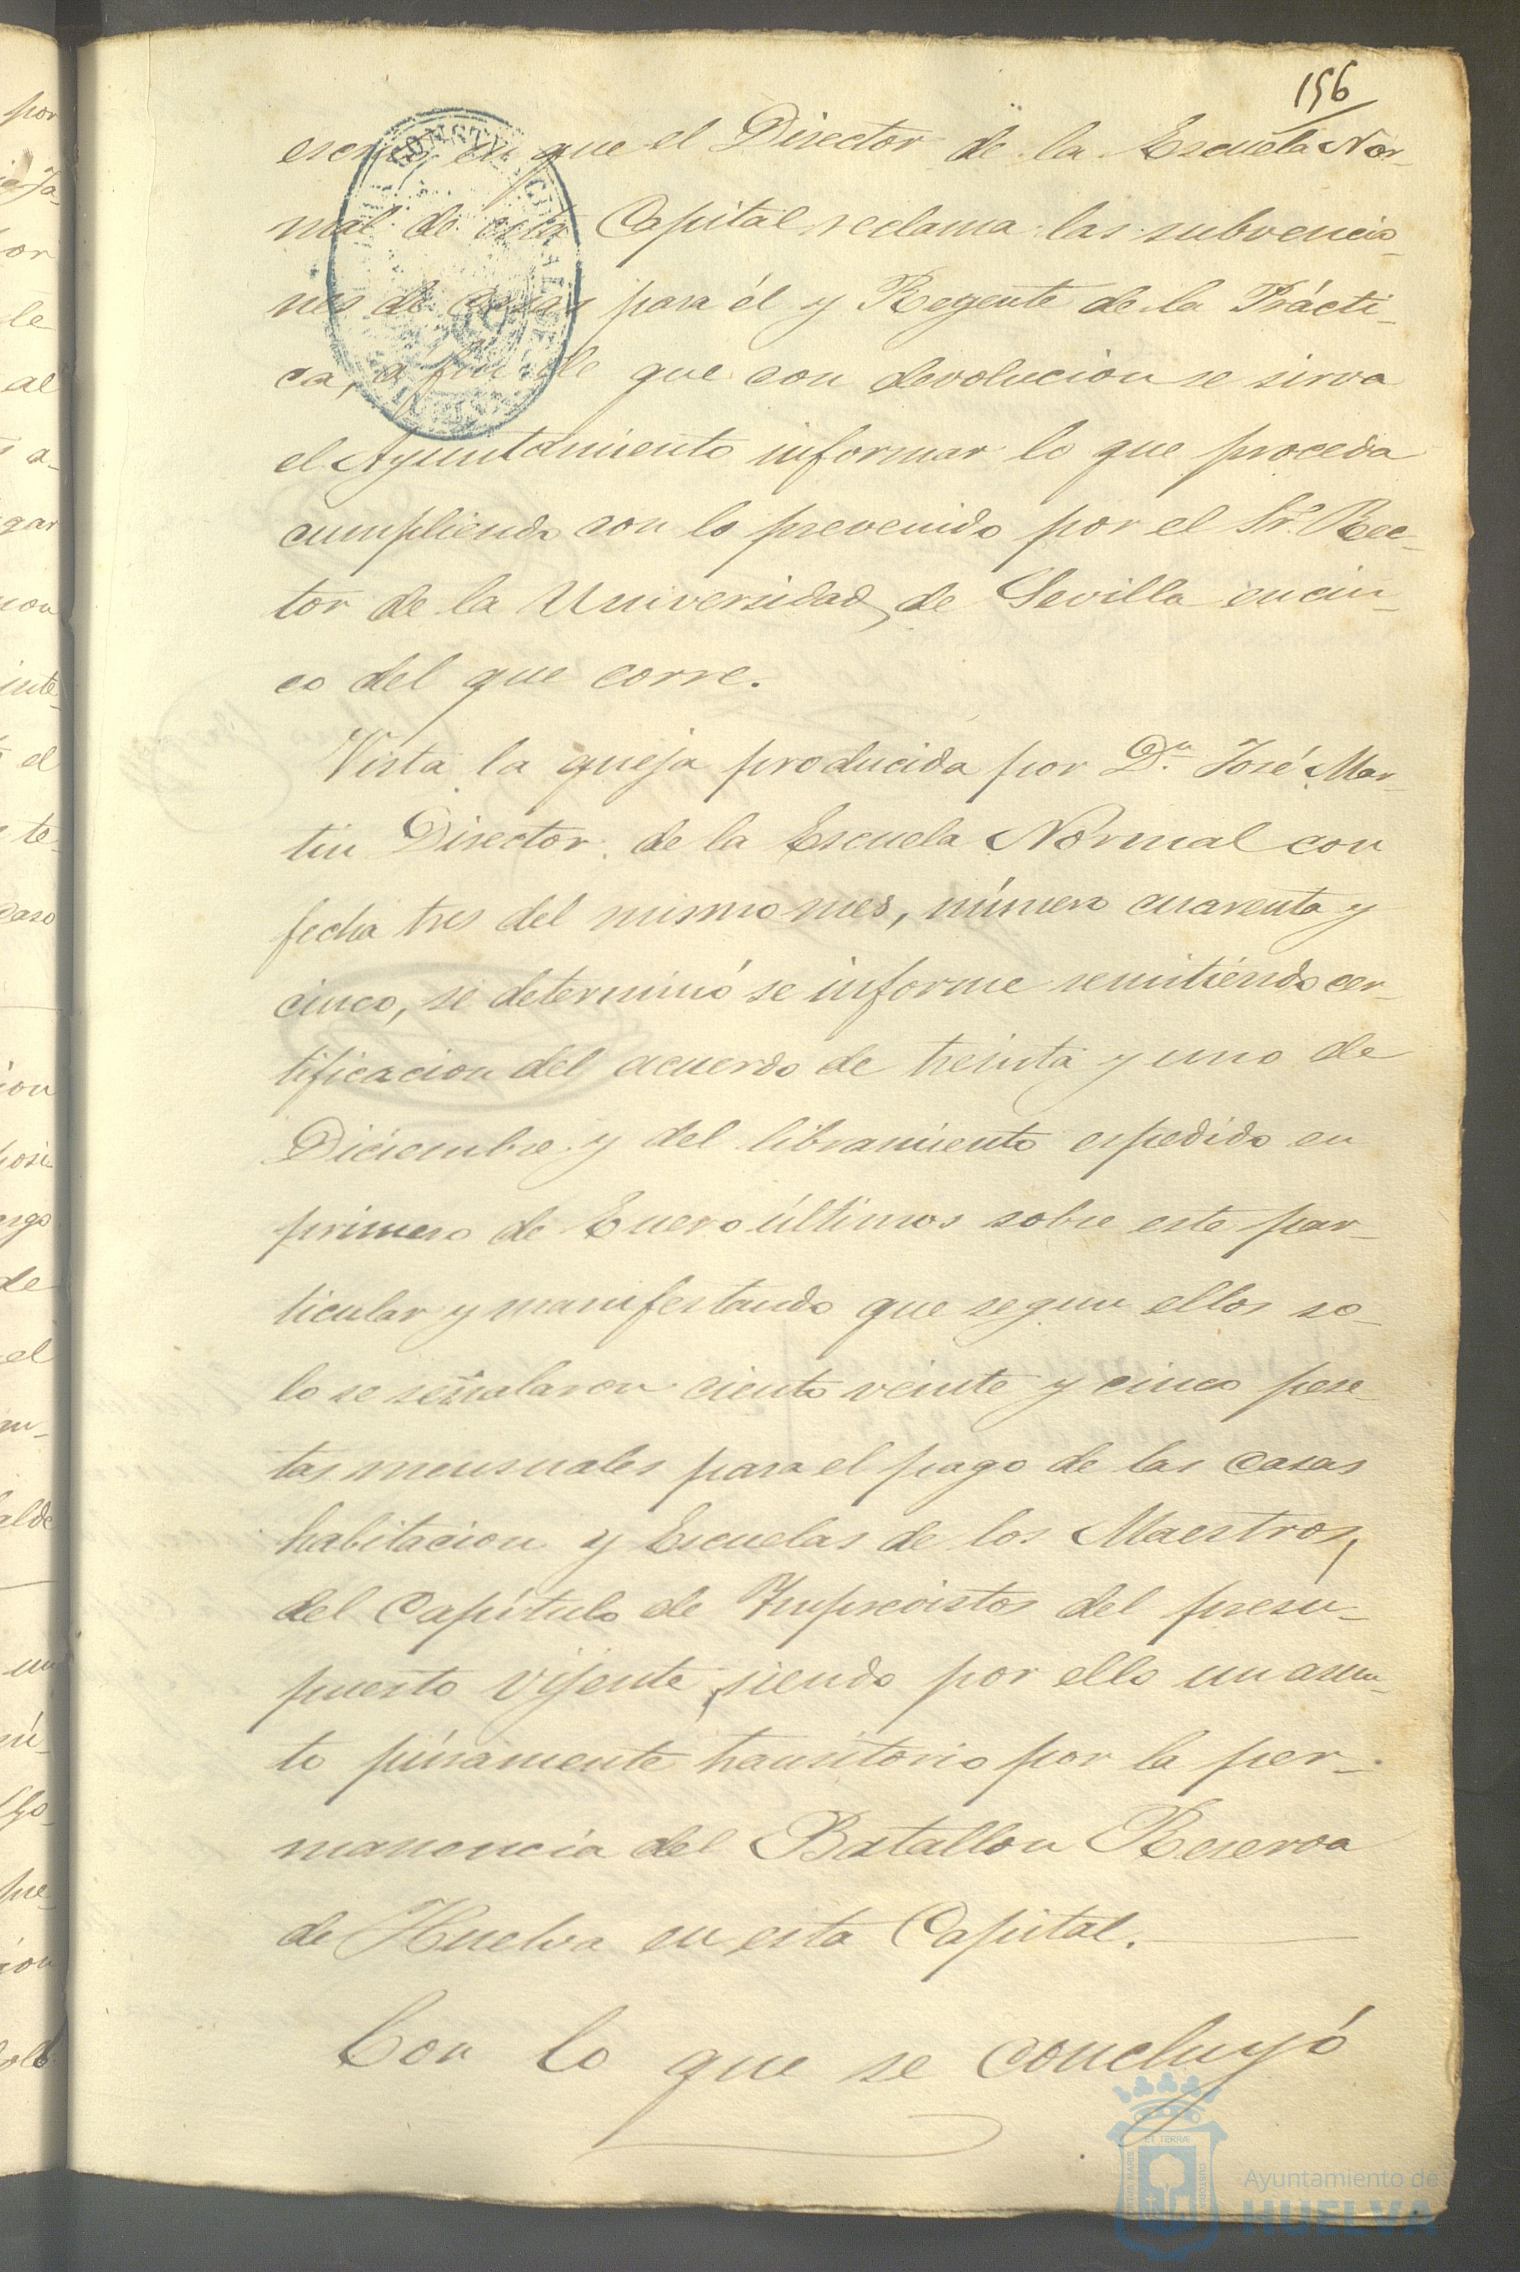 156
en que el Director de la Escuela Nor-
mal de esta Capital reclama las subvencio-
nes de casas para él y Regente de la Prácti-
ca, á fin de que con devolucion se sirva
el Ayuntamiento informar lo que proceda
cumpliendo con lo prevenido por el Sr. Rec-
tor de la Universidad de Sevilla en cin-
co del que corre.
Vista la queja producida por Dn. José Mar-
tin Director de la Escuela Normal con
fecha tres del mismo mes, número cuarenta y
cinco, se determinó se informe remitiendo cer-
tificacion del acuerdo de treinta y uno de
Diciembre y del libramiento espedido en
primero de Enero últimos sobre este par-
ticular y manifestando que segun ellos so-
lo se señalaron ciento veinte y cinco pese-
tas mensuales para el pago de las casas
habitacion y Escuelas de los Maestros,
del Capítulo de Imprevistos del presu-
puesto vijente, siendo por ello un asun-
to púramente transitorio por la per-
manencia del Batallon Reserva
de Huelva en esta Capital.
Con lo que se concluyó
Ayuntamiento de
HUELVA